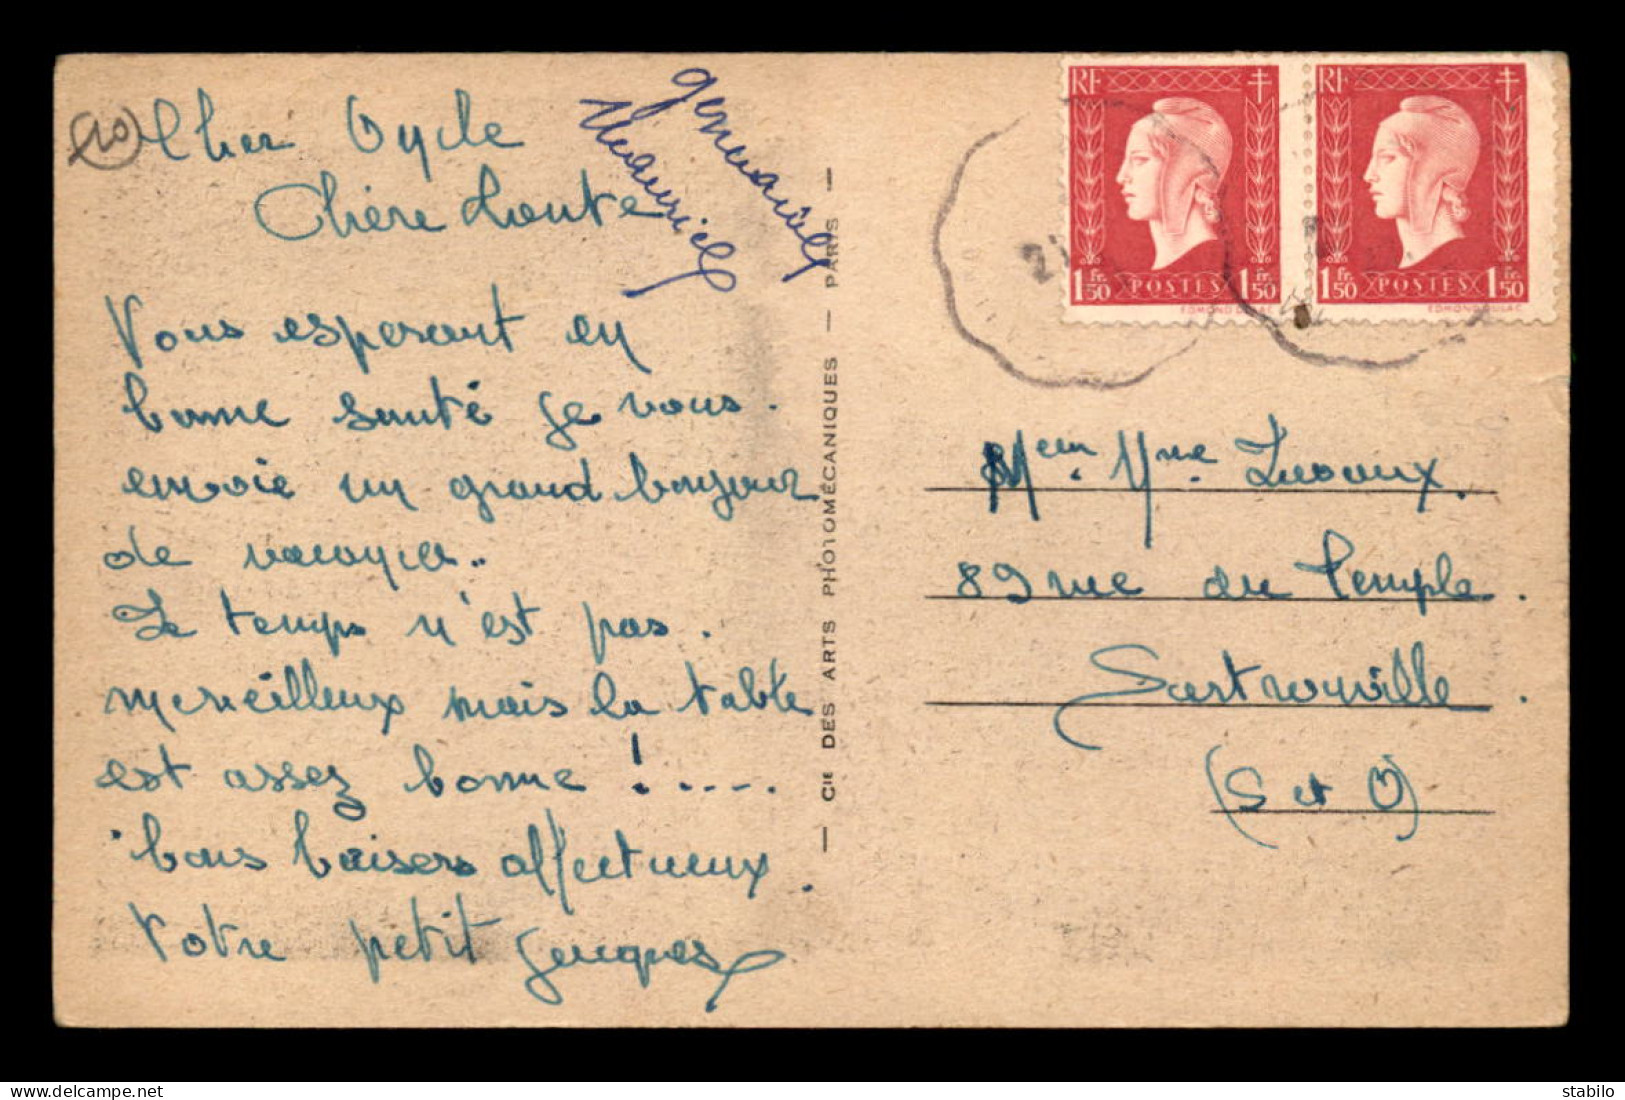 20
Cher Oncle
Chère Tante
Germaine
Maurice
Vous esperant en
bonne santé je vous
envoie un grand bonjour
de vacances..
Le temps n'est pas
merveilleux mais la table
est assez bonne !.....
bons baisers affectueux.
Votre petit Jacques
CIE DES ARTS PHOTOMÉCANIQUES — PARIS
RF
1 Fr. 50 POSTES 1 Fr. 50
EDMOND DULAC
RF
1 Fr. 50 POSTES 1 Fr. 50
EDMOND DULAC
Mme
89 rue du Temple.
Sartrouville.
(S et O)
stabilo